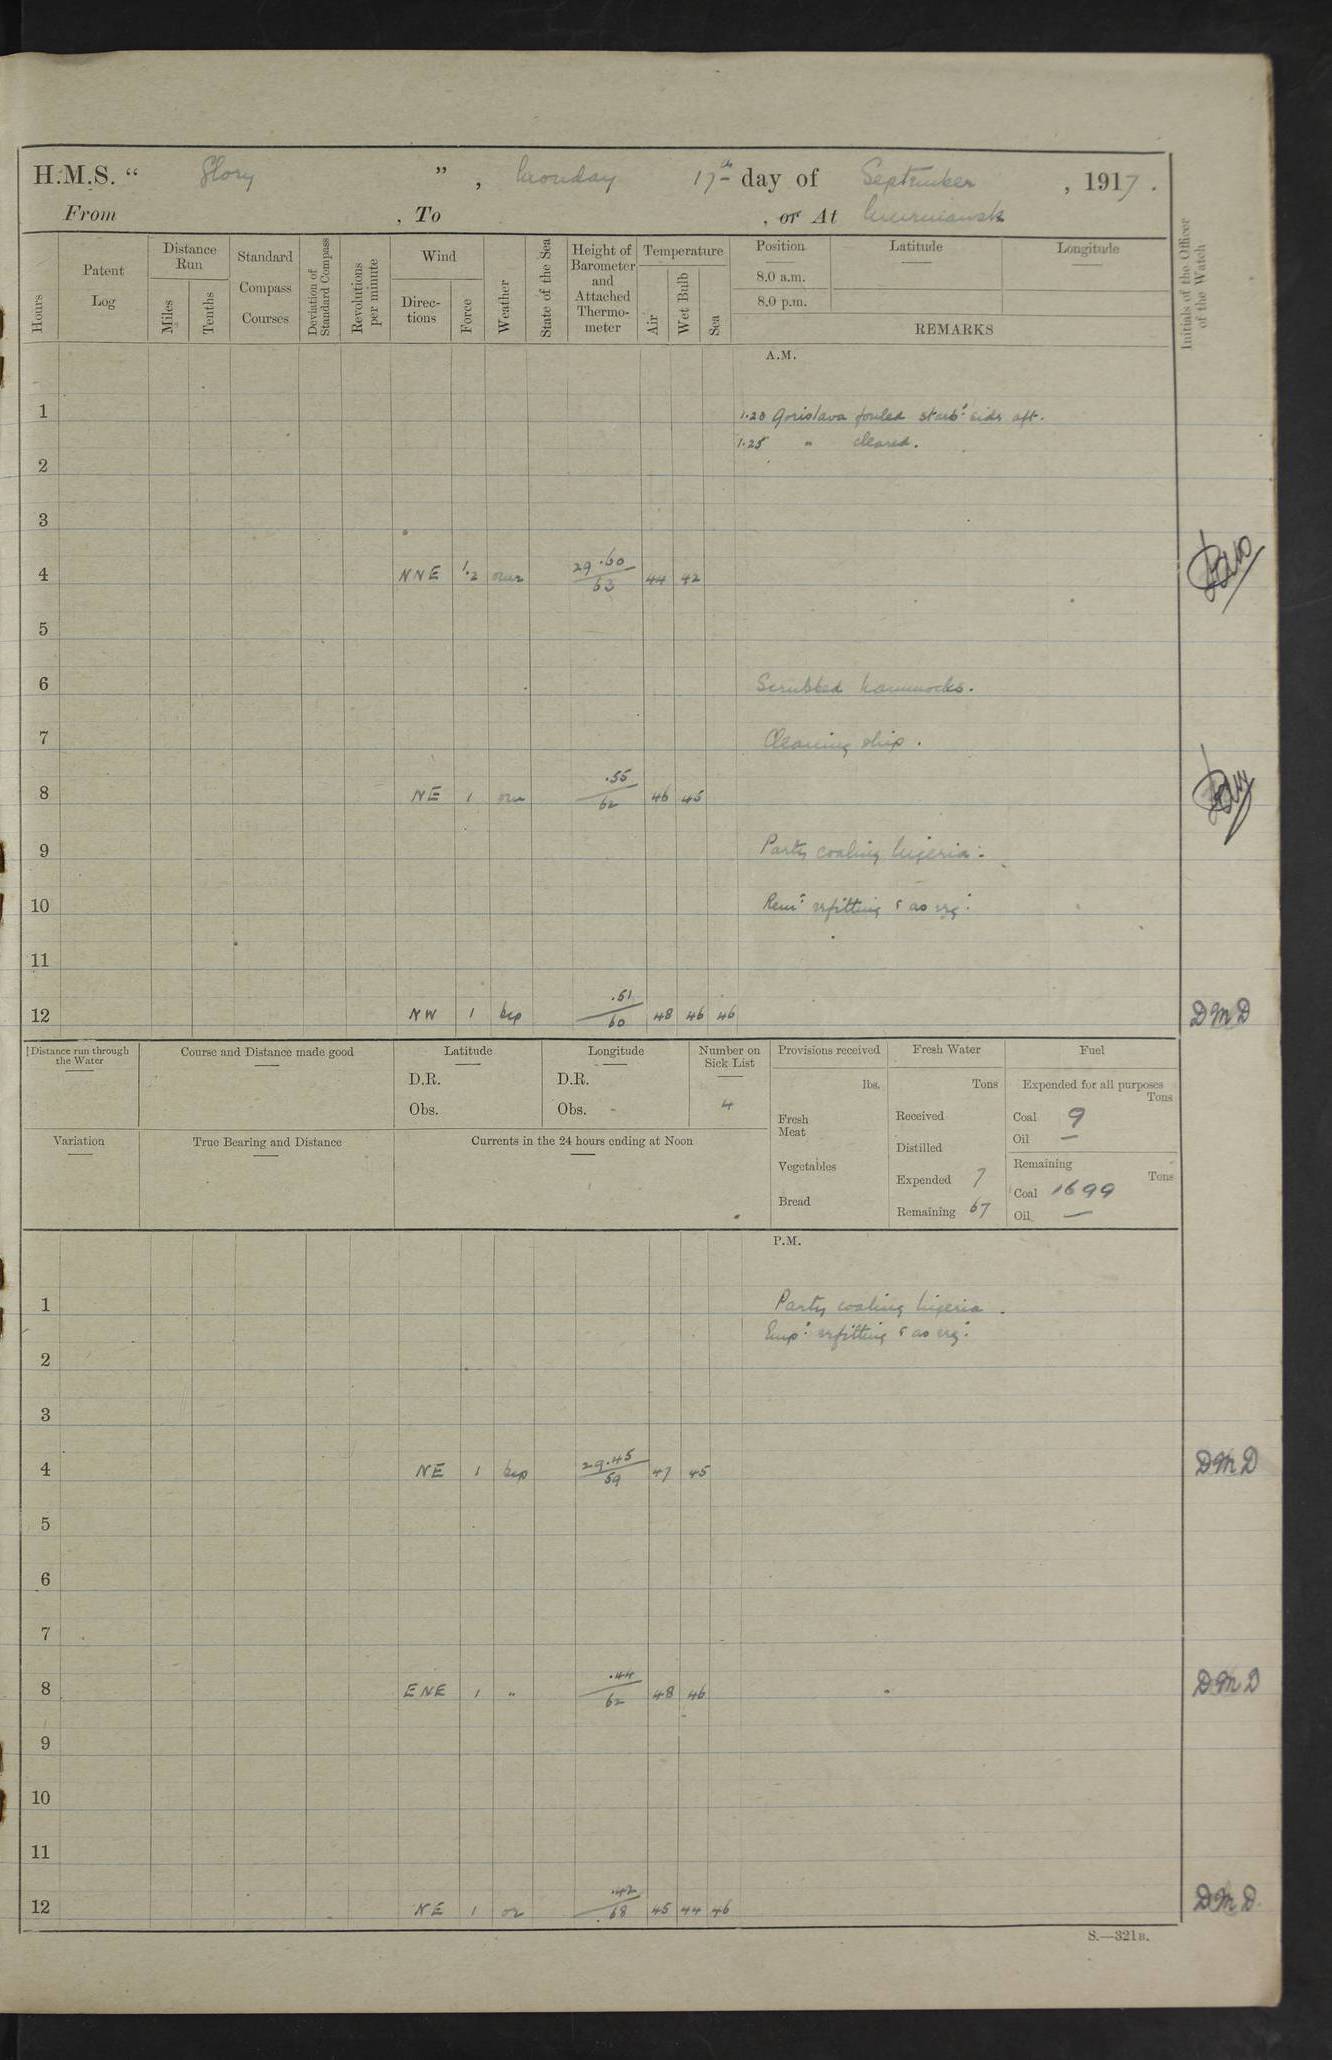 H.M.S. “ Glory ” , Monday 17th day of September , 1917 .
From , To , or At Murmansk
Hours
Patent Log
Distance Run
Miles
Tenths
Standard Compass Courses
Deviation of Standard Compass
Revolutions per minute
Wind
Directions
Force
Weather
State of the Sea
Height of Barometer and Attached Thermometer
Temperature
Air
Wet Bulb
Sea
Position
8.0 a.m.
8.0 p.m.
Latitude
Longitude
REMARKS
Initials of the Officer of the Watch
A.M.
1 1.20 Gorislava fouled starbd side aft.
1.25 " cleared.
2
3
4 NNE 1.2 29.60 63 44 42
5
6 Scrubbed hammocks.
7 Cleaning ship.
8 NE 1 .55 62 46 45
9 Party coaling
10 Remr refitting & as reqd
11
12 NW 1 bcp .51 60 48 46 46 DMD
Distance run through the Water
Course and Distance made good
Latitude
D.R.
Obs.
Longitude
D.R.
Obs. -
Number on Sick List
4
Provisions received
lbs.
Fresh Meat
Vegetables
Bread
Fresh Water
Tons
Received
Distilled
Expended 7
Remaining 67
Fuel
Expended for all purposes
Tons
Coal 9
Oil —
Remaining
Tons
Coal 1699
Oil —
Variation
True Bearing and Distance
Currents in the 24 hours ending at Noon
P.M.
1 Party coaling
Empd refitting & as reqd
2
3
4 NE 1 bcp 29.45 59 47 45 DMD
5
6
7
8 ENE 1 " .44 62 48 46 DMD
9
10
11
12 NE 1 or .42 68 45 44 46 DMD
S.—321B.